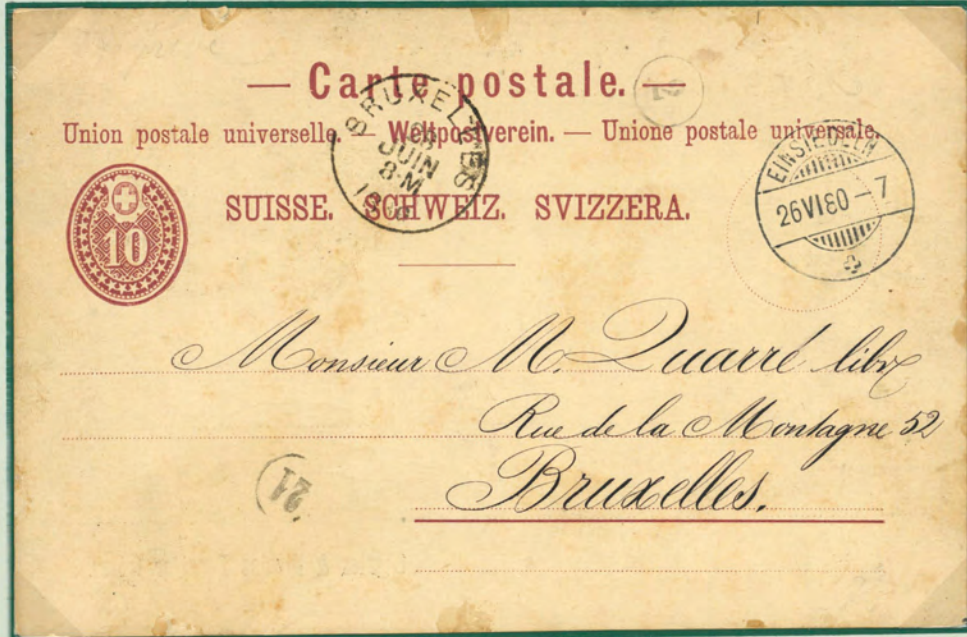 — Carte postale. —
Union postale universelle. — Weltpostverein. — Unione postale universale.
SUISSE. SCHWEIZ. SVIZZERA.
10
BRUXELLES
JUIN
8-M
EINSIEDELN
26 VI 80 – 7
Monsieur M. Quarré libr
Rue de la Montagne 52
Bruxelles.
21